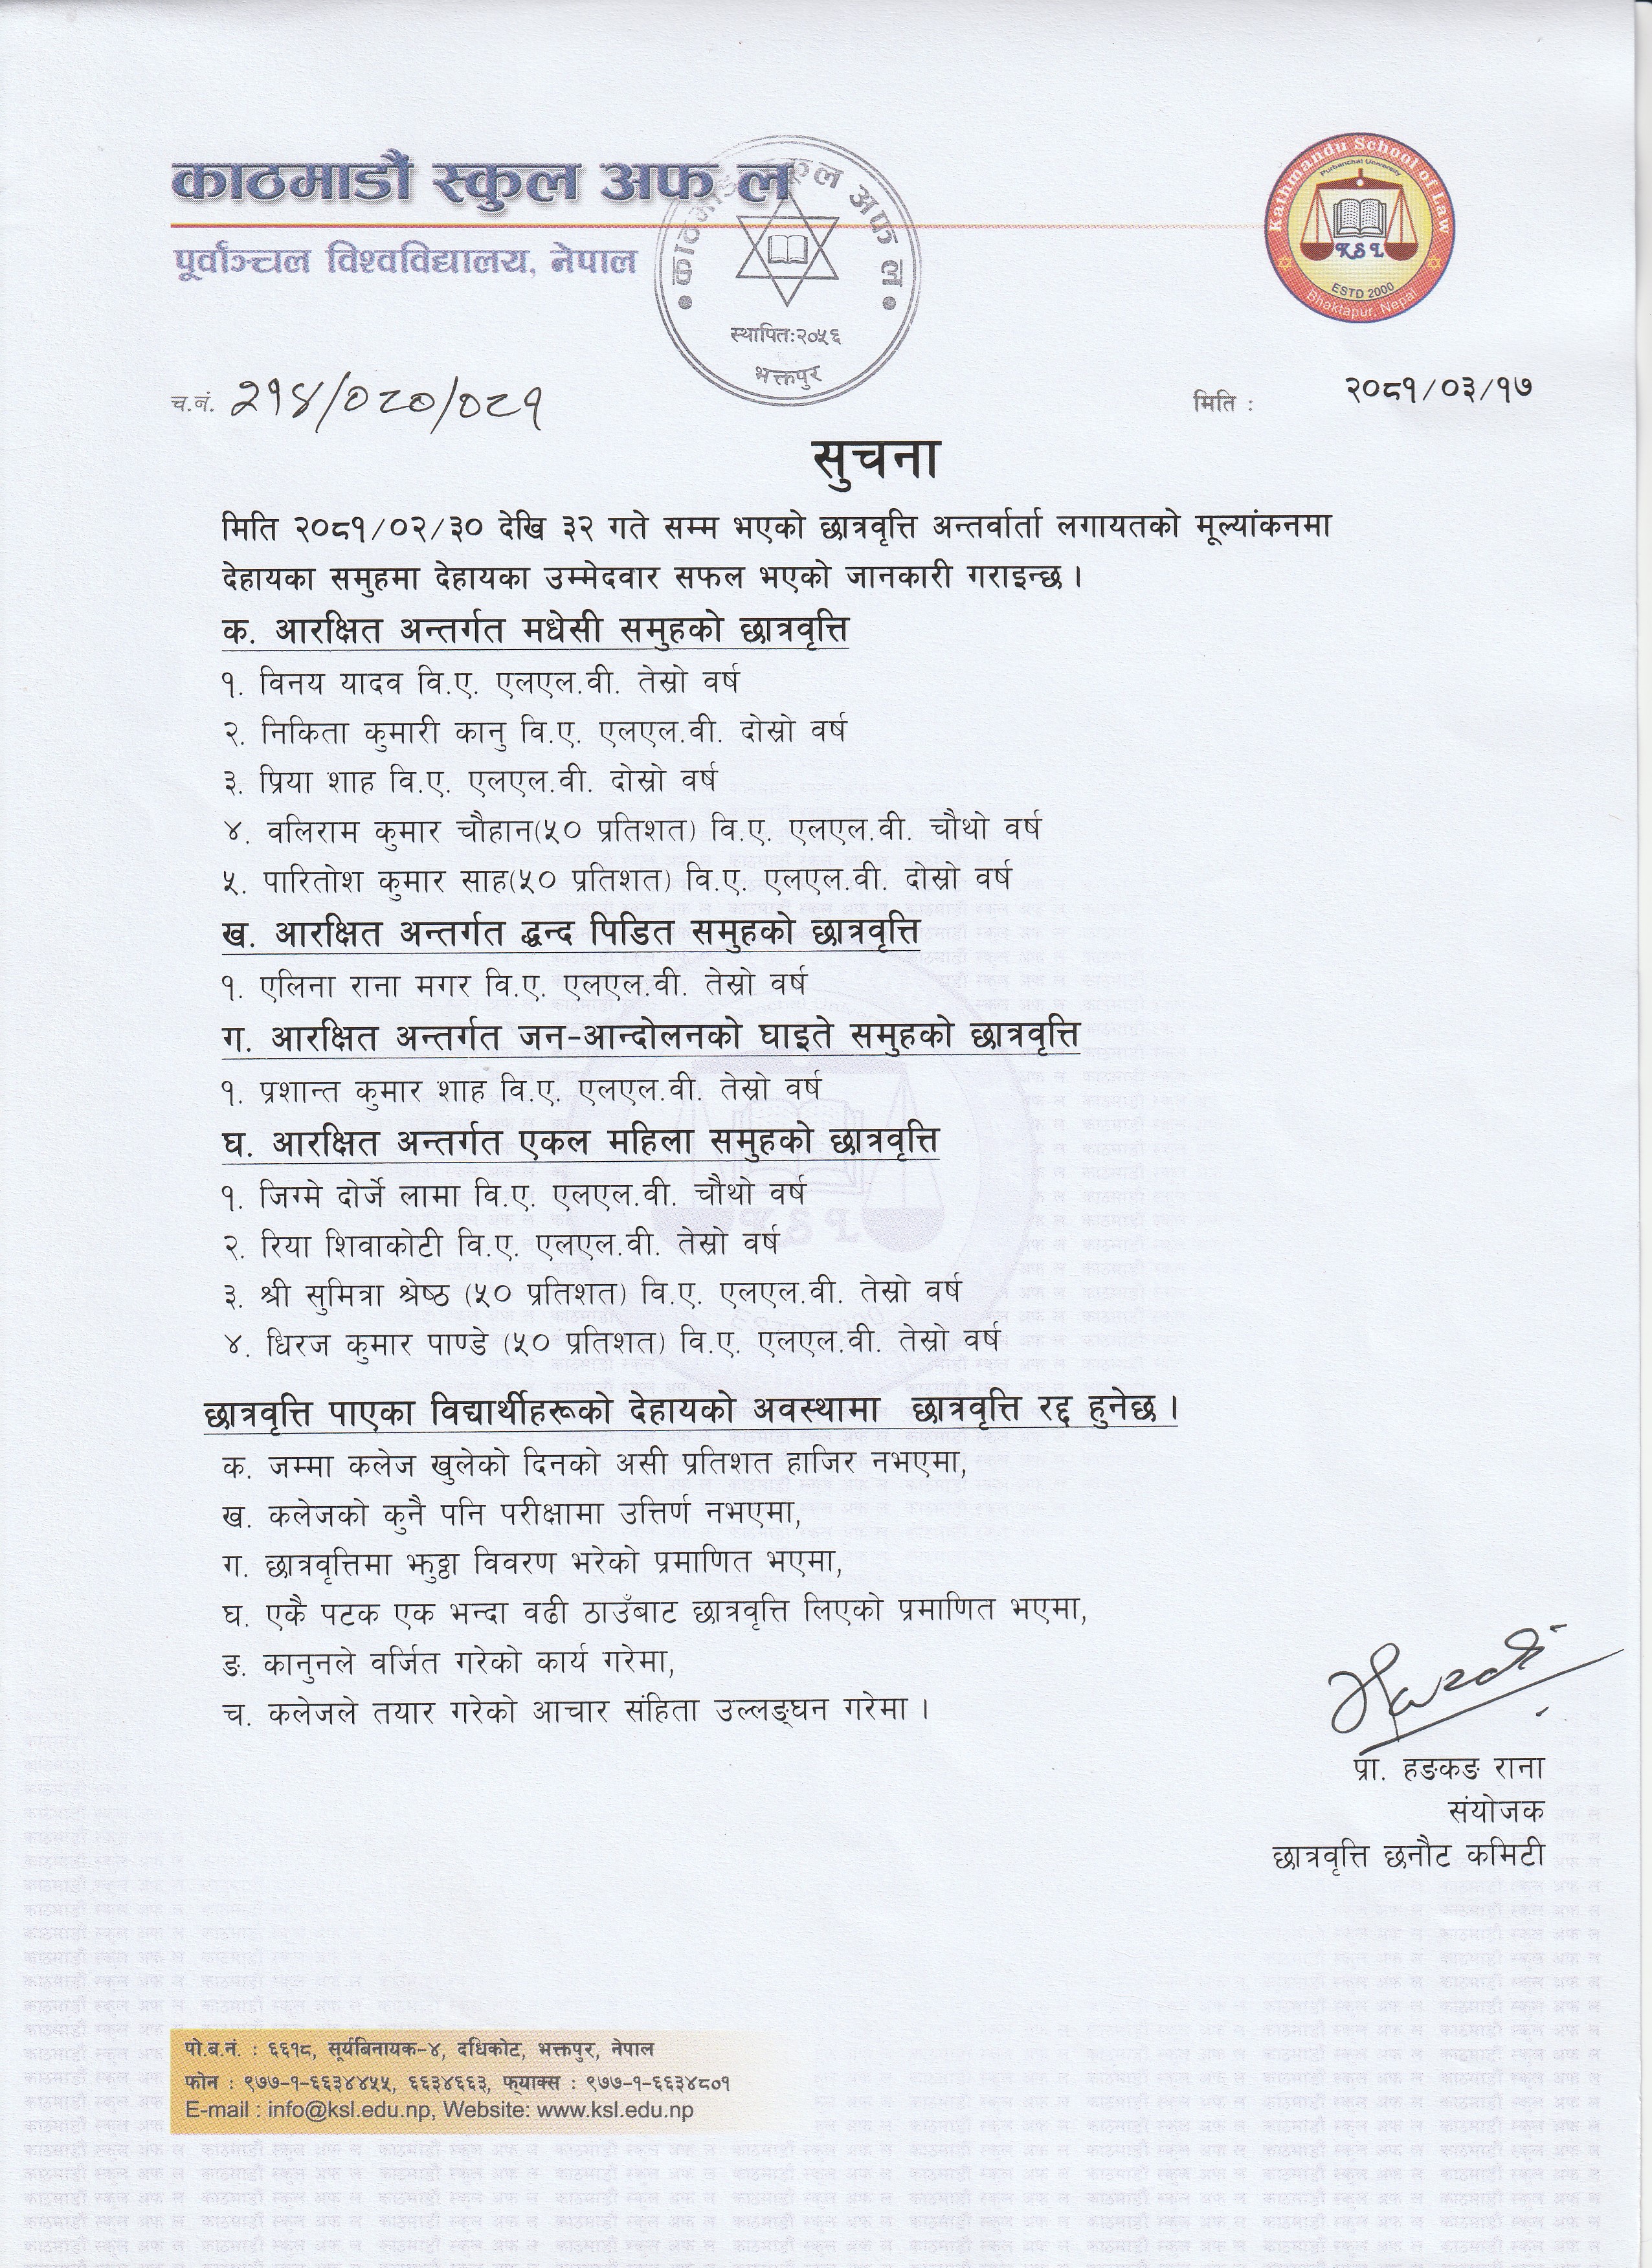 काठमाडौं स्कुल अफ ल
पूर्वाञ्चल विश्वविद्यालय, नेपाल
काठमाडौं स्कूल अफ ल
स्थापितः२०५६
भक्तपुर
Kathmandu School of Law
Purbanchal University
KSL
ESTD 2000
Bhaktapur, Nepal
च.नं. २१४/०८०/०८१
मिति : २०८१/०३/१७
सुचना
मिति २०८१/०२/३० देखि ३२ गते सम्म भएको छात्रवृत्ति अन्तर्वार्ता लगायतको मूल्यांकनमा
देहायका समुहमा देहायका उम्मेदवार सफल भएको जानकारी गराइन्छ ।
क. आरक्षित अन्तर्गत मधेसी समुहको छात्रवृत्ति
१. विनय यादव वि.ए. एलएल.वी. तेस्रो वर्ष
२. निकिता कुमारी कानु वि.ए. एलएल.वी. दोस्रो वर्ष
३. प्रिया शाह वि.ए. एलएल.वी. दोस्रो वर्ष
४. वलिराम कुमार चौहान(५० प्रतिशत) वि.ए. एलएल.वी. चौथो वर्ष
५. पारितोश कुमार साह(५० प्रतिशत) वि.ए. एलएल.वी. दोस्रो वर्ष
ख. आरक्षित अन्तर्गत द्धन्द पिडित समुहको छात्रवृत्ति
१. एलिना राना मगर वि.ए. एलएल.वी. तेस्रो वर्ष
ग. आरक्षित अन्तर्गत जन-आन्दोलनको घाइते समुहको छात्रवृत्ति
१. प्रशान्त कुमार शाह वि.ए. एलएल.वी. तेस्रो वर्ष
घ. आरक्षित अन्तर्गत एकल महिला समुहको छात्रवृत्ति
१. जिग्मे दोर्जे लामा वि.ए. एलएल.वी. चौथो वर्ष
२. रिया शिवाकोटी वि.ए. एलएल.वी. तेस्रो वर्ष
३. श्री सुमित्रा श्रेष्ठ (५० प्रतिशत) वि.ए. एलएल.वी. तेस्रो वर्ष
४. धिरज कुमार पाण्डे (५० प्रतिशत) वि.ए. एलएल.वी. तेस्रो वर्ष
छात्रवृत्ति पाएका विद्यार्थीहरूको देहायको अवस्थामा छात्रवृत्ति रद्द हुनेछ ।
क. जम्मा कलेज खुलेको दिनको असी प्रतिशत हाजिर नभएमा,
ख. कलेजको कुनै पनि परीक्षामा उत्तिर्ण नभएमा,
ग. छात्रवृत्तिमा झुठ्ठा विवरण भरेको प्रमाणित भएमा,
घ. एकै पटक एक भन्दा वढी ठाउँबाट छात्रवृत्ति लिएको प्रमाणित भएमा,
ङ. कानुनले वर्जित गरेको कार्य गरेमा,
च. कलेजले तयार गरेको आचार संहिता उल्लङ्घन गरेमा ।
प्रा. हङकङ राना
संयोजक
छात्रवृत्ति छनौट कमिटी
पो.ब.नं. : ६६१८, सूर्यबिनायक-४, दधिकोट, भक्तपुर, नेपाल
फोन : ९७७-१-६६३४४५५, ६६३४६६३, फ्याक्स : ९७७-१-६६३४८०१
E-mail : info@ksl.edu.np, Website: www.ksl.edu.np